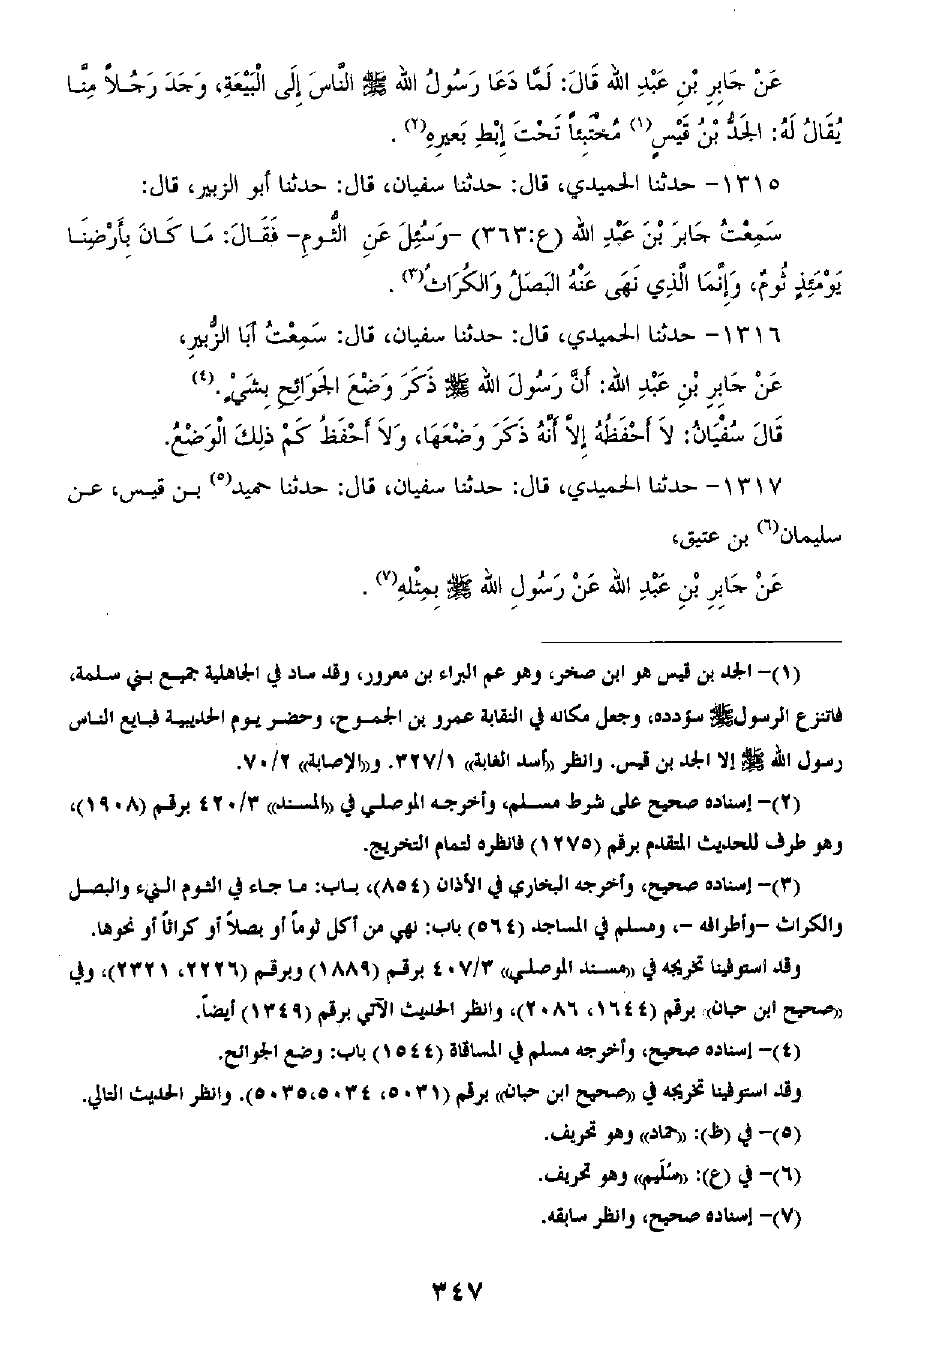 عَنْ جَابِرِ بْنِ عَبْدِ الله قَالَ: لَمَّا دَعَا رَسُولُ الله ﷺ النَّاسَ إِلَى الْبَيْعَةِ، وَجَدَ رَجُلاً مِنَّا
يُقَالُ لَهُ: الجَدُّ بْنُ قَيْسٍ(١) مُخْتَبِئاً تَحْتَ إِبْطِ بَعِيرِهِ(٢) .
١٣١٥- حدثنا الحميدي، قال: حدثنا سفيان، قال: حدثنا أبو الزبير، قال:
سَمِعْتُ جَابِرَ بْنَ عَبْدِ الله (ع:٣٦٣) -وَسُئِلَ عَنِ الثُّومِ- فَقَالَ: مَا كَانَ بِأَرْضِنَا
يَوْمَئِذٍ ثُومٌ، وَإِنَّمَا الَّذِي نَهَى عَنْهُ البَصَلُ وَالكُرَاثُ(٣) .
١٣١٦- حدثنا الحميدي، قال: حدثنا سفيان، قال: سَمِعْتُ أَبَا الزُّبيرِ،
عَنْ جَابِرِ بْنِ عَبْدِ الله: أَنَّ رَسُولَ الله ﷺ ذَكَرَ وَضْعَ الجَوَائِحِ بِشَيْءٍ.(٤)
قَالَ سُفْيَانُ: لاَ أَحْفَظُهُ إِلاَّ أَنَّهُ ذَكَرَ وَضْعَهَا، وَلاَ أَحْفَظُ كَمْ ذلِكَ الْوَضْعُ.
١٣١٧- حدثنا الحميدي، قال: حدثنا سفيان، قال: حدثنا حميد(٥) بن قيس، عن
سليمان(٦) بن عتيق،
عَنْ جَابِرِ بْنِ عَبْدِ الله عَنْ رَسُولِ الله ﷺ بِمِثْلِهِ(٧) .
(١)- الجد بن قيس هو ابن صخر، وهو عم البراء بن معرور، وقد ساد في الجاهلية جميع بني سلمة،
فانتزع الرسولﷺ سؤدده، وجعل مكانه في النقابة عمرو بن الجموح، وحضر يوم الحديبية فبايع الناس
رسول الله ﷺ إلا الجد بن قيس. وانظر «أسد الغابة» ٣٢٧/١. و«الإصابة» ٧٠/٢.
(٢)- إسناده صحيح على شرط مسلم، وأخرجه الموصلي في «المسند» ٤٢٠/٣ برقم (١٩٠٨)،
وهو طرف للحديث المتقدم برقم (١٢٧٥) فانظره لتمام التخريج.
(٣)- إسناده صحيح، وأخرجه البخاري في الأذان (٨٥٤)، باب: ما جاء في الثوم النيء والبصل
والكراث -وأطرافه -، ومسلم في المساجد (٥٦٤) باب: نهي من أكل ثوماً أو بصلاً أو كراثاً أو نحوها.
وقد استوفينا تخريجه في «مسند الموصلي» ٤٠٧/٣ برقم (١٨٨٩) وبرقم (٢٢٢٦، ٢٣٢١)، وفي
«صحيح ابن حبان» برقم (١٦٤٤، ٢٠٨٦)، وانظر الحديث الآتي برقم (١٣٤٩) أيضاً.
(٤)- إسناده صحيح، وأخرجه مسلم في المساقاة (١٥٤٤) باب: وضع الجوائح.
وقد استوفينا تخريجه في «صحيح ابن حبان» برقم (٥٠٣١، ٥٠٣٤،٥٠٣٥). وانظر الحديث التالي.
(٥)- في (ظ): «حماد» وهو تحريف.
(٦)- في (ع): «سُلَيم» وهو تحريف.
(٧)- إسناده صحيح، وانظر سابقه.
٣٤٧